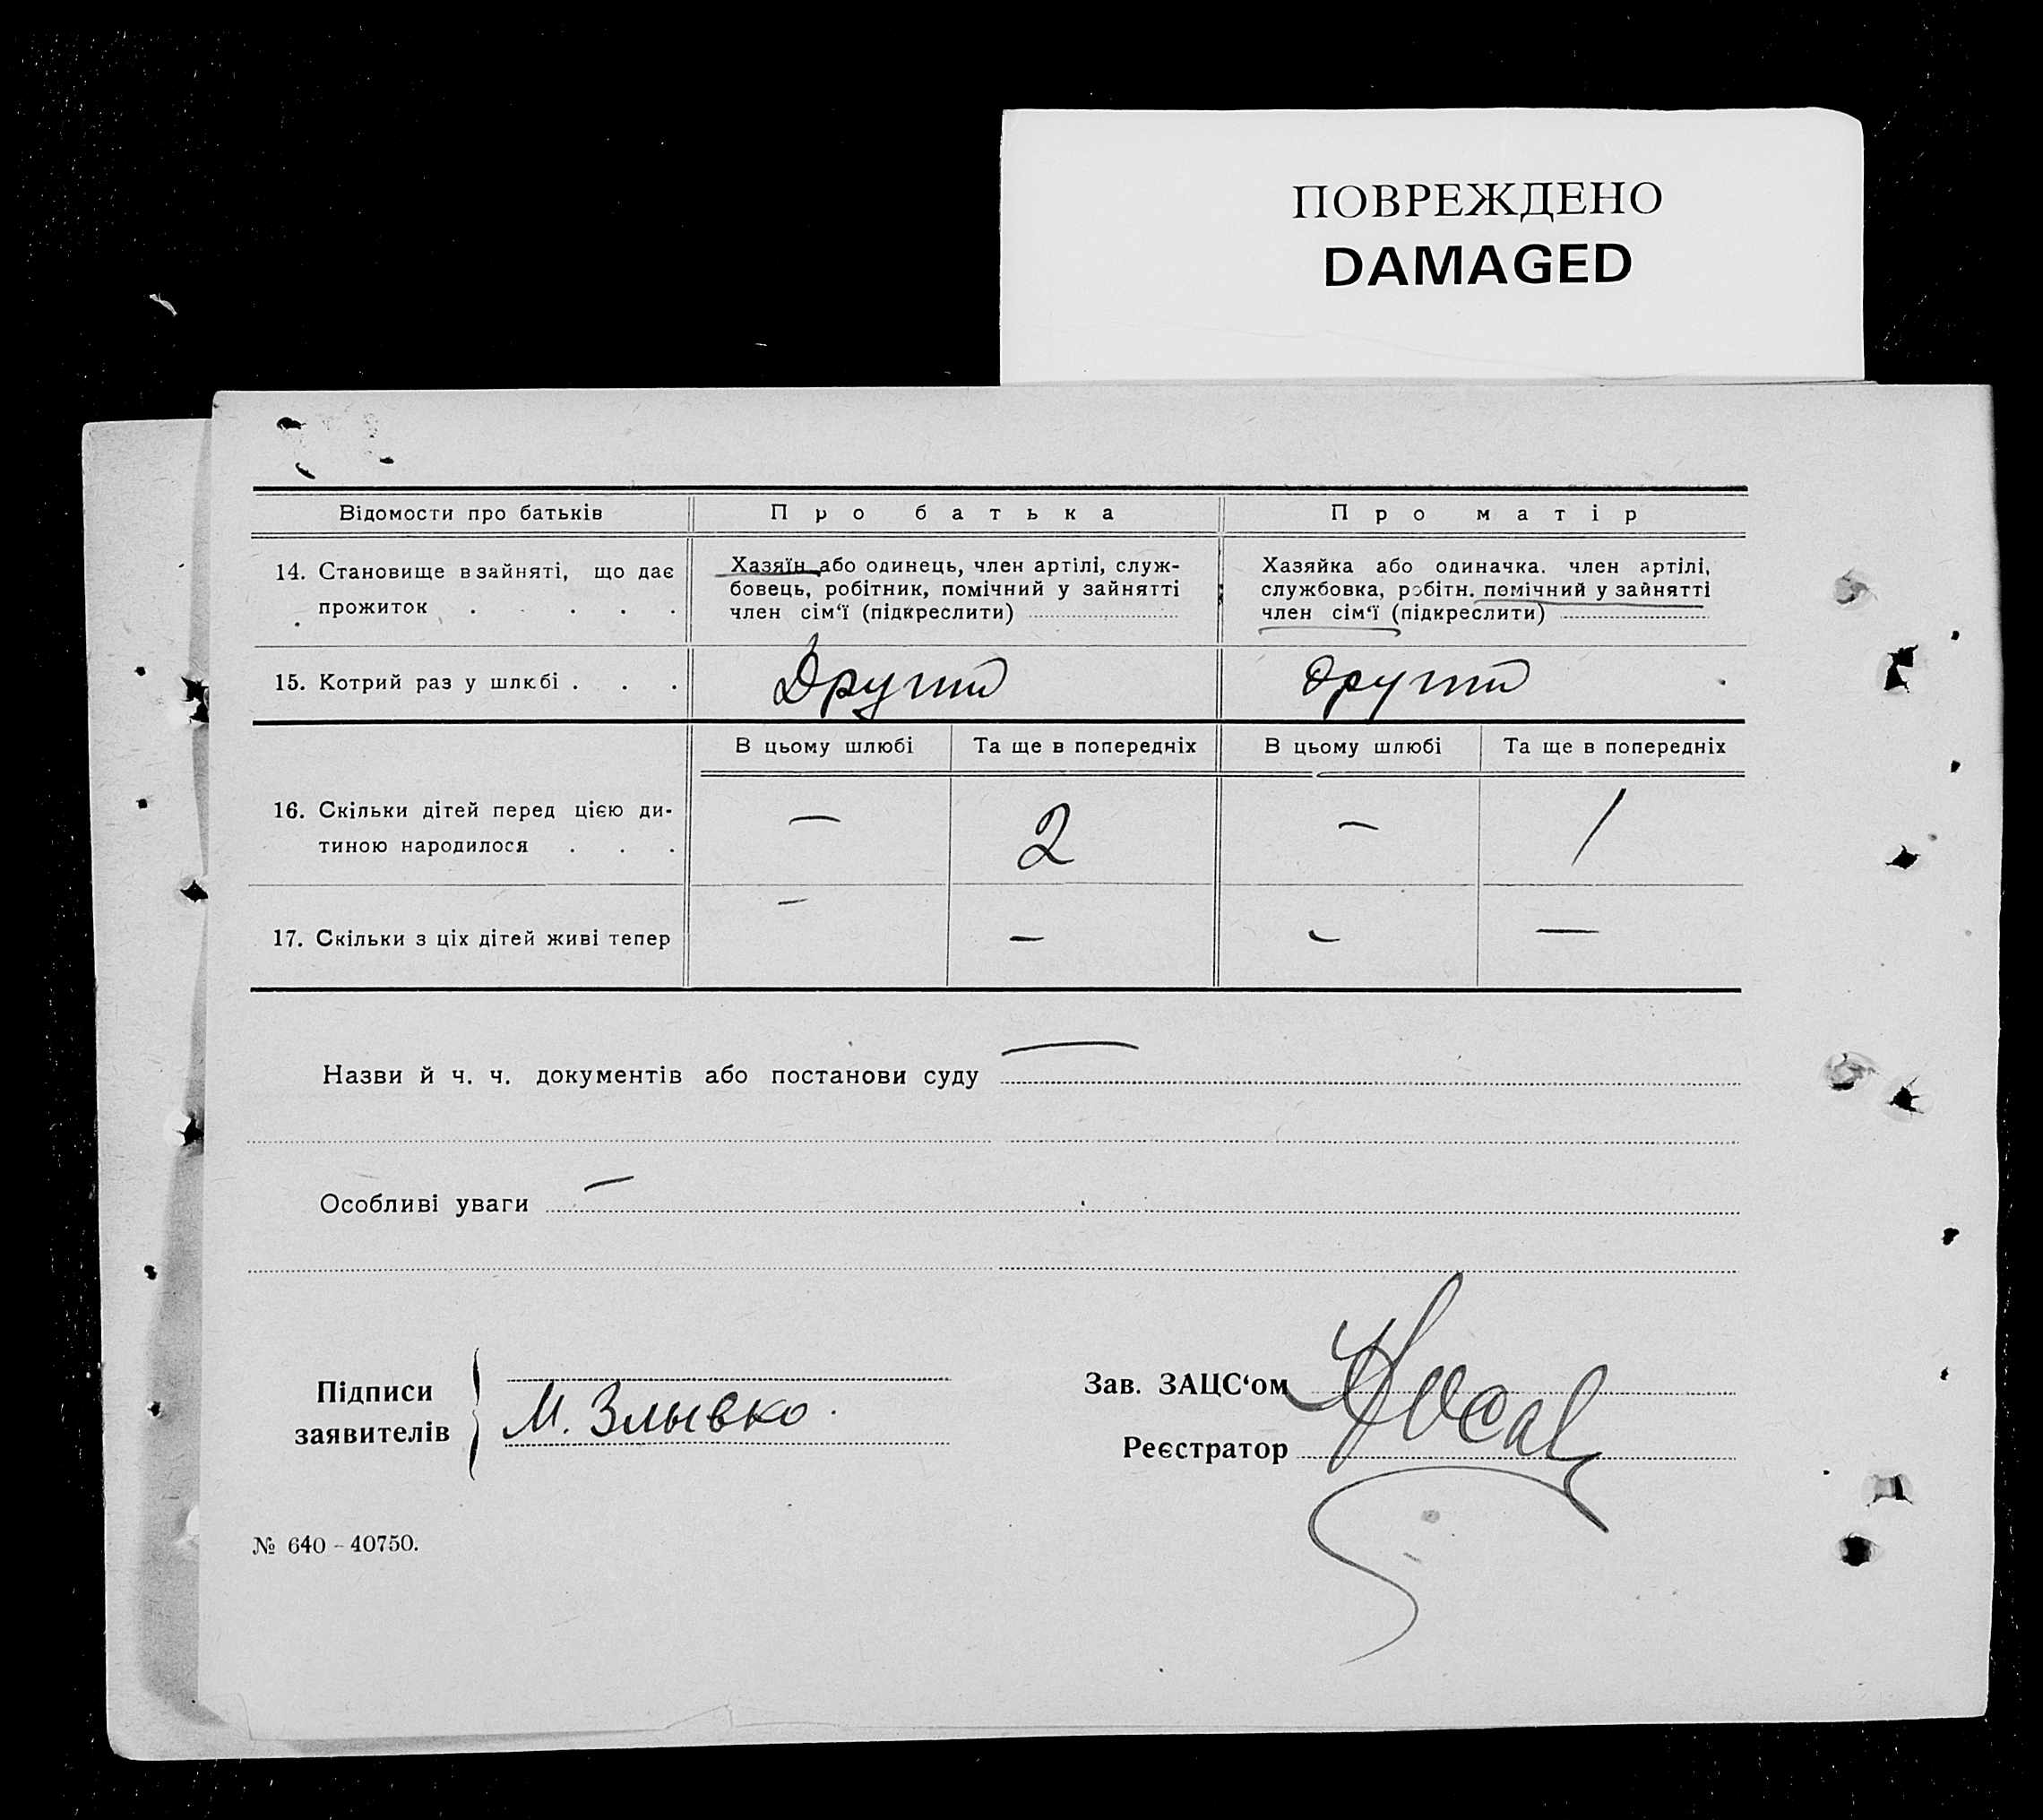 ПОВРЕЖДЕНО
DAMAGED
Відомости про батьків
Про батька
Про матір
14. Становище в зайняті, що дає
прожиток . . . . .
Хазяїн або одинець, член артілі, служ-
бовець, робітник, помічний у зайнятті
член сім‘ї (підкреслити)
Хазяйка або одиначка. член артілі,
службовка, робітн. помічний у зайнятті
член сім‘ї (підкреслити)
15. Котрий раз у шлюбі . . .
Другий
другий
В цьому шлюбі
Та ще в попередніх
В цьому шлюбі
Та ще в попередніх
16. Скільки дітей перед цією ди-
тиною народилося . . .
—
2
—
1
17. Скільки з ціх дітей живі тепер
—
—
—
—
Назви й ч. ч. документів або постанови суду —
Особливі уваги —
Підписи
заявителів
М. Злывко.
Зав. ЗАЦС‘ом
Реєстратор
№ 640 – 40750.